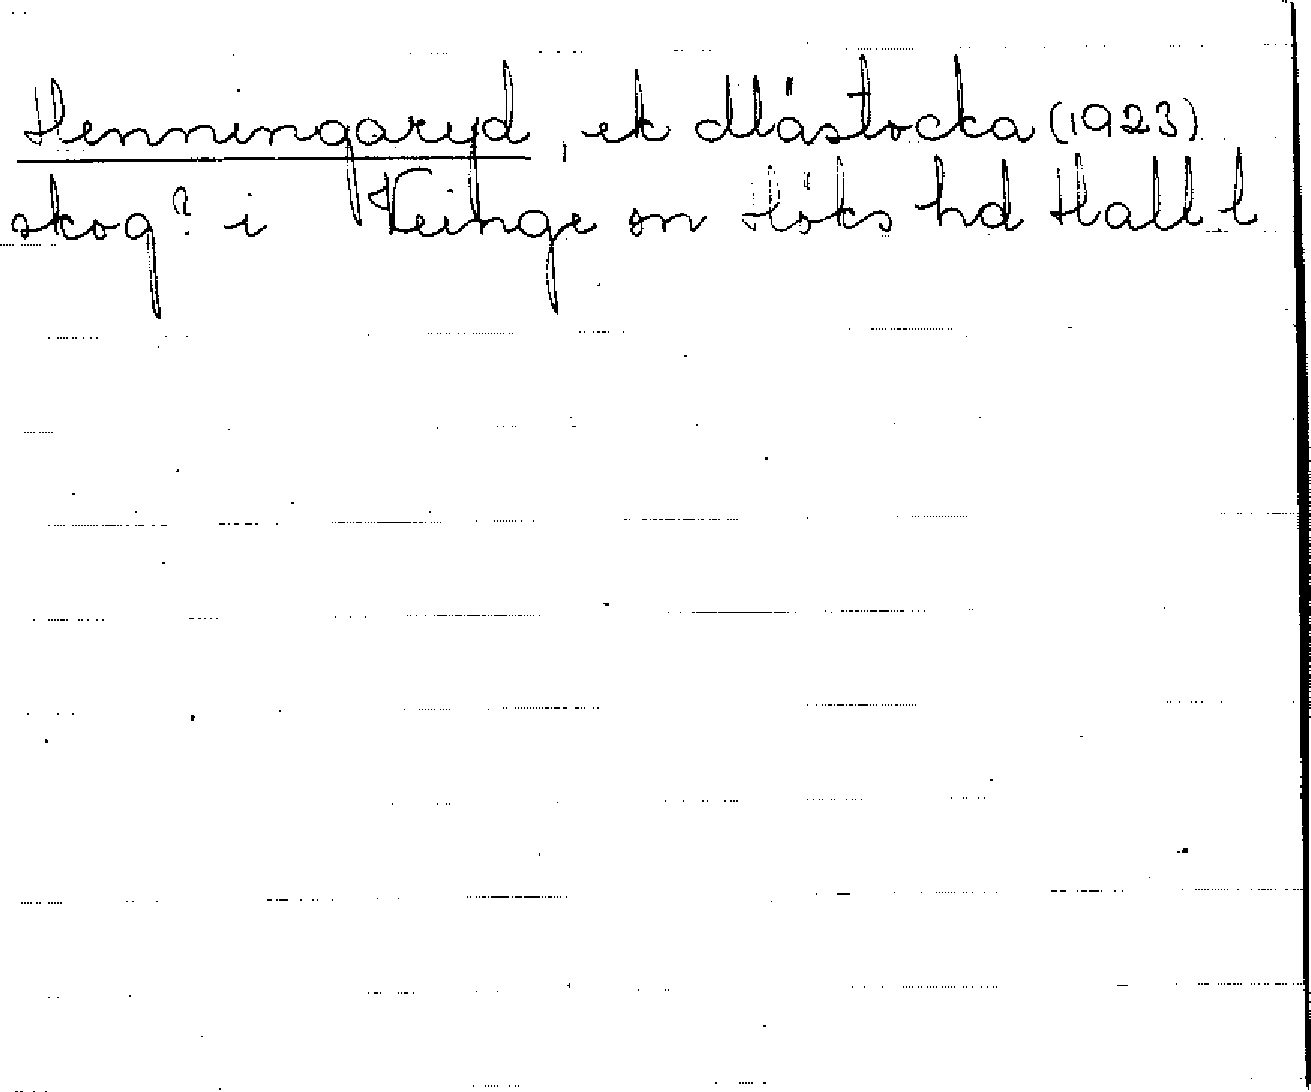 Henningaryd, ek Mástocka (1923)
skog? i Veinge sn Höks hd Hall l